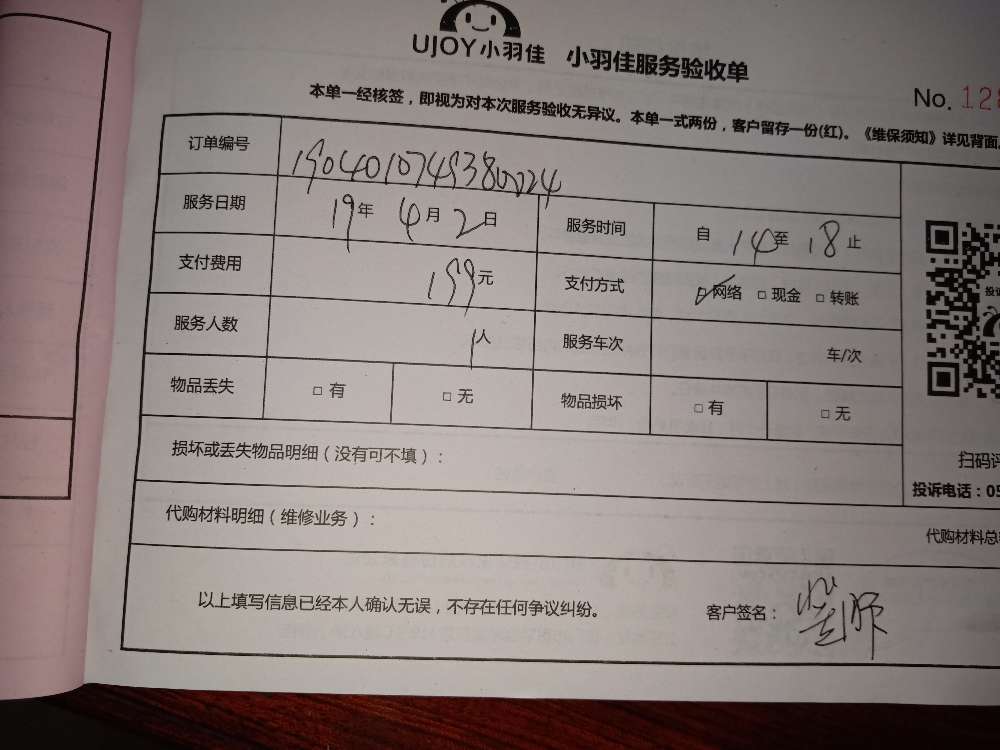 UJOY小羽佳 小羽佳服务验收单
No. 128
本单一经核签，即视为对本次服务验收无异议。本单一式两份，客户留存一份(红)。《维保须知》详见背面。
订单编号 1904010749380024
服务日期 19年 4月 2日 服务时间 自 14至 18止
支付费用 199元 支付方式 ☑网络 □现金 □转账
服务人数 1人 服务车次 车/次
物品丢失 □有 □无 物品损坏 □有 □无
损坏或丢失物品明细（没有可不填）：
扫码评
投诉电话：05
代购材料明细（维修业务）：
代购材料总
以上填写信息已经本人确认无误，不存在任何争议纠纷。 客户签名：